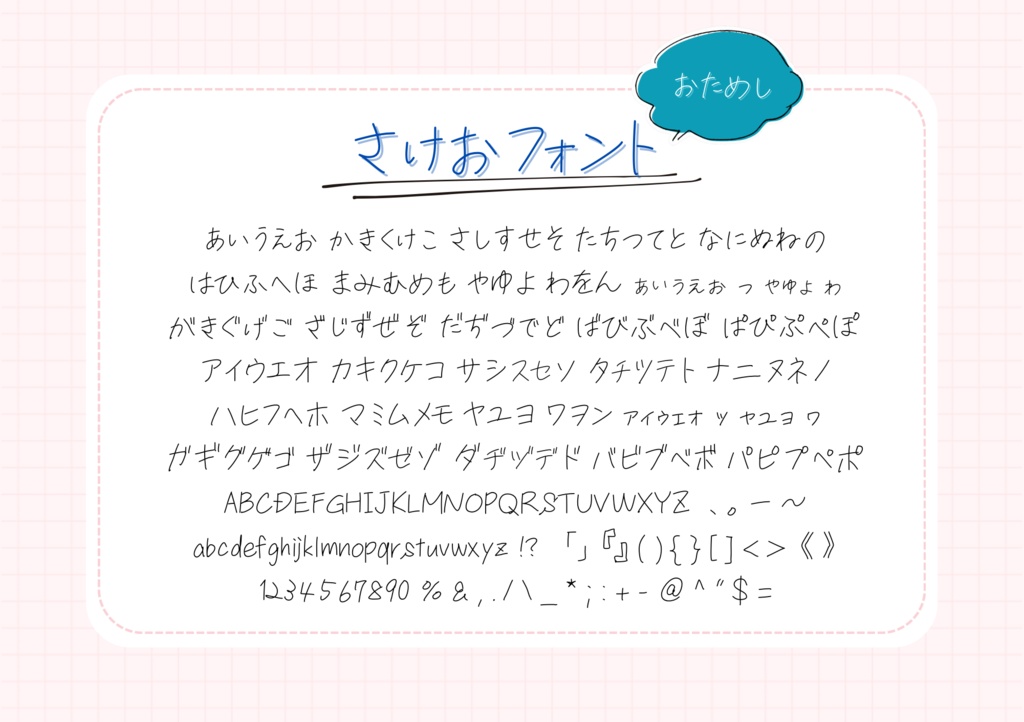 おためし
さけおフォント
あいうえお かきくけこ さしすせそ たちつてと なにぬねの
はひふへほ まみむめも やゆよ わをん ぁぃぅぇぉ っ ゃゅょ ゎ
がきぐげご ざじずぜぞ だぢづでど ばびぶべぼ ぱぴぷぺぽ
アイウエオ カキクケコ サシスセソ タチツテト ナニヌネノ
ハヒフヘホ マミムメモ ヤユヨ ワヲン ァィゥェォ ッ ャュョ ヮ
ガギグゲゴ ザジズゼゾ ダヂヅデド バビブベボ パピプペポ
ABCDEFGHIJKLMNOPQRSTUVWXYZ 、。ー〜
abcdefghijklmnopqrstuvwxyz !? 「」『』(){}[]<>《》
1234567890 % & , . / \ _ * ; : + - @ ^ " $ =